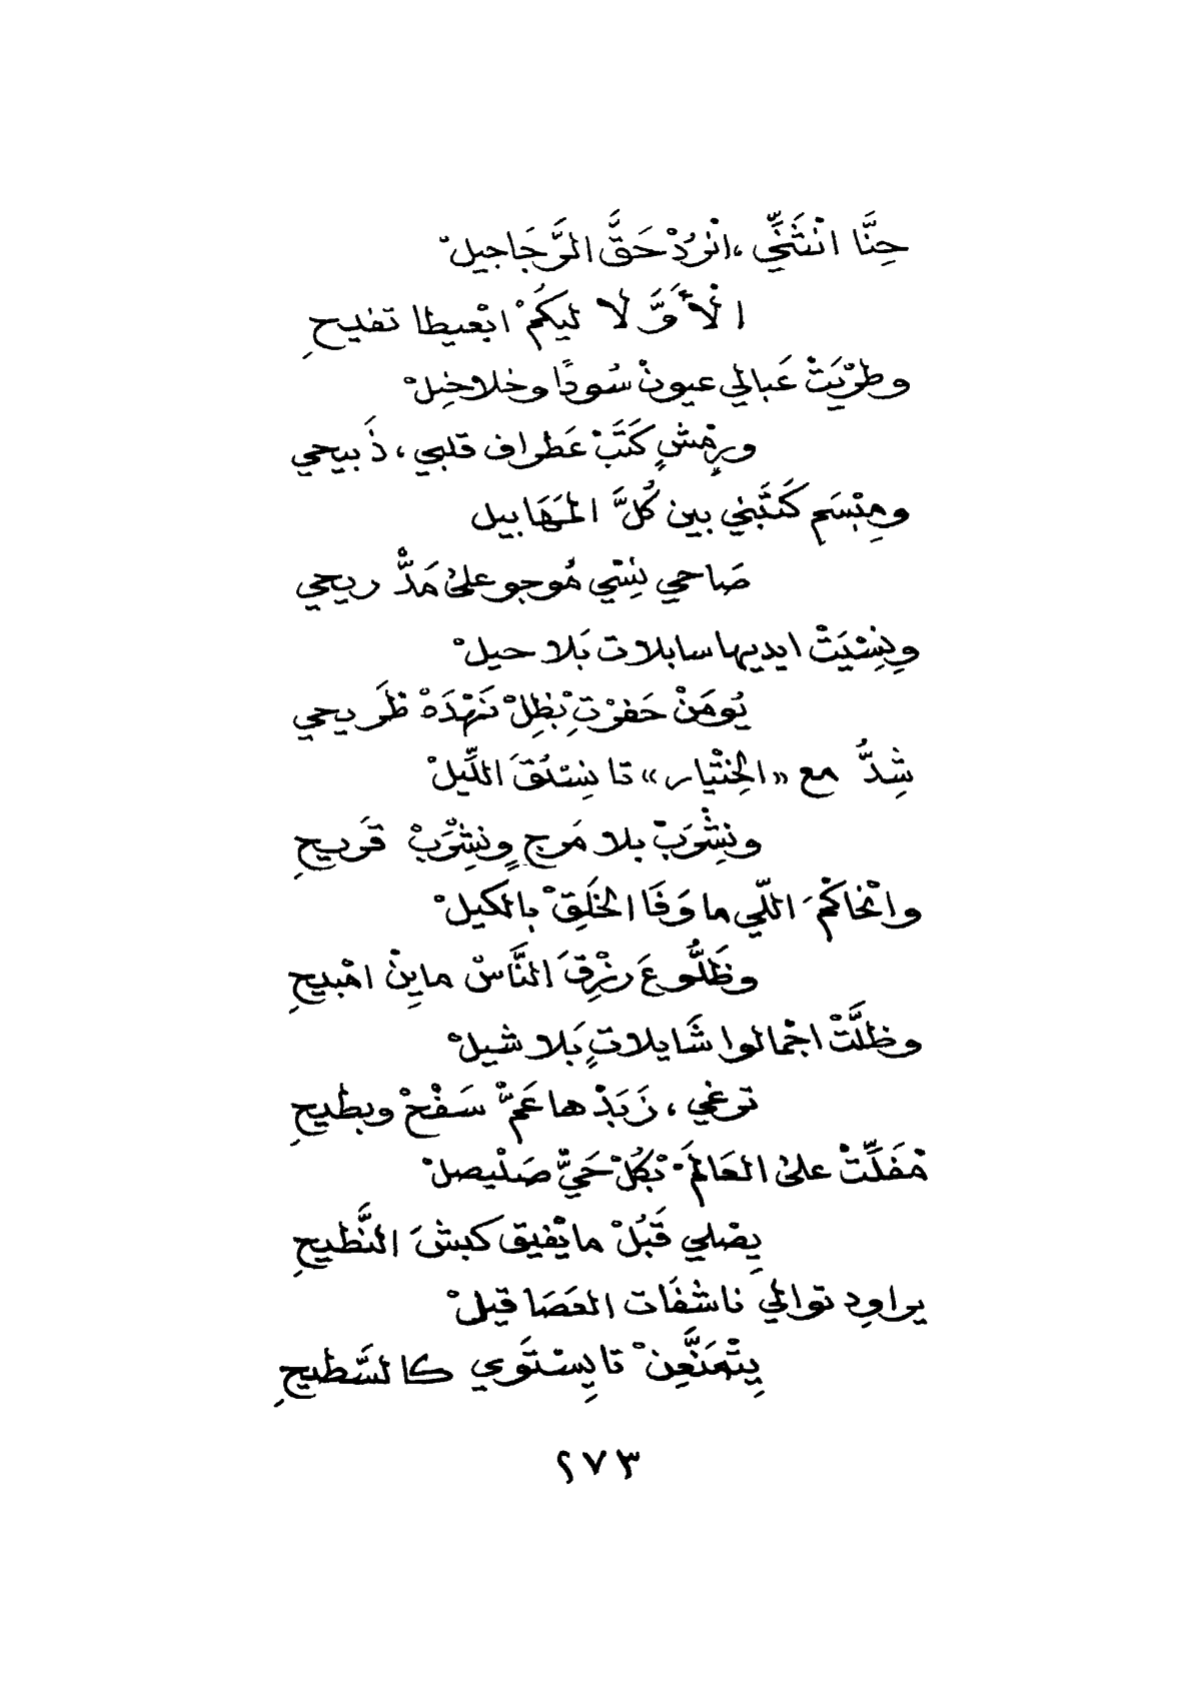 حِنَّا انْثَنِّي ،انْرُدْ حَقَّ الرَّجَاجيلْ
الْأَوَّ لَا ليكُمْ ابْعيطا تفيحِ
وطرْيَتْ عَبالي عيونْ سُودًا وخلاخِلْ
ورِمْشٍ كَتَبْ عَطراف قلبي ، ذَبيحي
ومِبْسَمِ كَتَبْني بين كُلَّ المَهَابيل
صَاحي نِسْي مُوجو على مَدّْ ريحي
ونِسْيَتْ ايديها سابلات بَلا حيلْ
يُومَنْ حَفرْتِ بْظِلْ نَهْدَهْ ظَريحي
شِدُّ مع «الخِتْيار» تا نِسْبُقَ اللّيلْ
ونِشْرَبْ بلا مَرجٍ ونِشْرَبْ قَريحِ
واتْحاكَمَ اللّي ما وَفَا الخَلِقْ بالكيلْ
وظَلُّو عَ رزْقَ النَّاسْ ماينْ امْبيحِ
وظلَّتْ اجْمالوا شَايلاتٍ بَلا شيلْ
ترغي ، زَبَدْها عَمّْ سَفْحْ وبطيحِ
مْفَلِّتْ على العَالَمْ بْكُلْ حَيّْ صَلْيصلْ
يِصْلي قَبُلْ مايْفيق كبشَ النَّطيحِ
يراوِد توالي ناشفَات العَصَاقيلْ
يِتْمَنَّعِنْ تا يِسْتَوي كالسَّطيحِ
٢٧٣